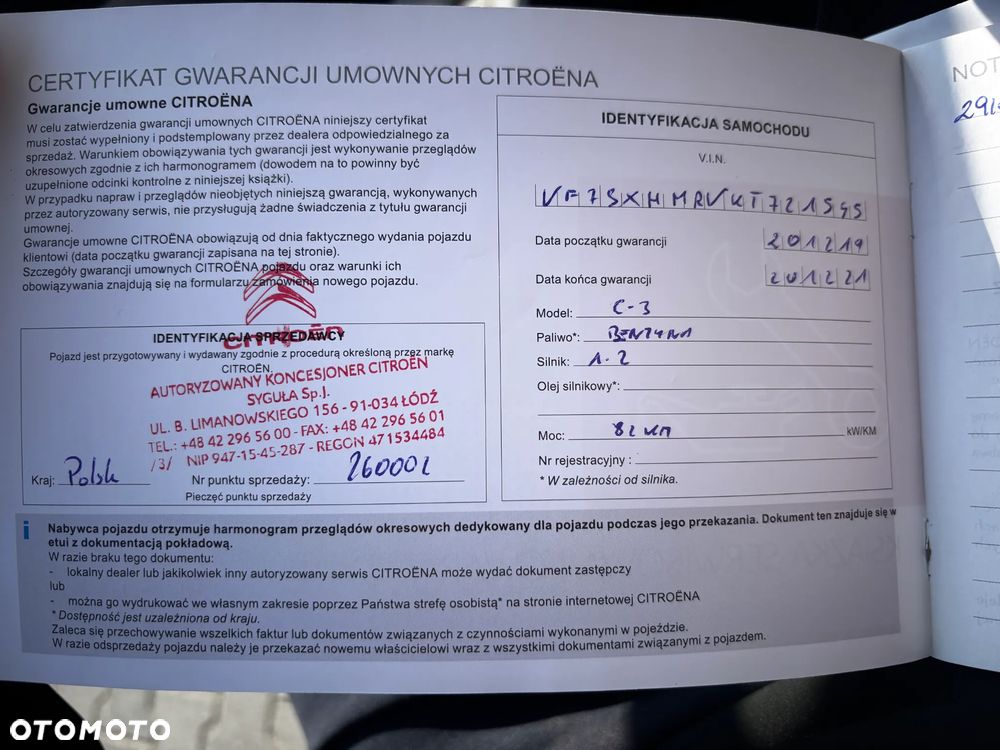 CERTYFIKAT GWARANCJI UMOWNYCH CITROËNA
Gwarancje umowne CITROËNA
W celu zatwierdzenia gwarancji umownych CITROËNA niniejszy certyfikat
musi zostać wypełniony i podstemplowany przez dealera odpowiedzialnego za
sprzedaż. Warunkiem obowiązywania tych gwarancji jest wykonywanie przeglądów
okresowych zgodnie z ich harmonogramem (dowodem na to powinny być
uzupełnione odcinki kontrolne z niniejszej książki).
W przypadku napraw i przeglądów nieobjętych niniejszą gwarancją, wykonywanych
przez autoryzowany serwis, nie przysługują żadne świadczenia z tytułu gwarancji
umownej.
Gwarancje umowne CITROËNA obowiązują od dnia faktycznego wydania pojazdu
klientowi (data początku gwarancji zapisana na tej stronie).
Szczegóły gwarancji umownych CITROËNA pojazdu oraz warunki ich
obowiązywania znajdują się na formularzu zamówienia nowego pojazdu.
CITROËN
IDENTYFIKACJA SPRZEDAWCY
Pojazd jest przygotowywany i wydawany zgodnie z procedurą określoną przez markę
CITROËN.
AUTORYZOWANY KONCESJONER CITROËN
SYGUŁA Sp.J.
UL. B. LIMANOWSKIEGO 156 - 91-034 ŁÓDŹ
TEL.: +48 42 296 56 00 - FAX: +48 42 296 56 01
/3/ NIP 947-15-45-287 - REGON 471534484
Kraj: Polsk
Nr punktu sprzedaży: 260002
Pieczęć punktu sprzedaży
IDENTYFIKACJA SAMOCHODU
V.I.N.
VF7SXHMRVKT721545
Data początku gwarancji 201219
Data końca gwarancji 201221
Model: C-3
Paliwo*: BENZYNA
Silnik: 1.2
Olej silnikowy*:
Moc: 82 KM kW/KM
Nr rejestracyjny :
* W zależności od silnika.
i
Nabywca pojazdu otrzymuje harmonogram przeglądów okresowych dedykowany dla pojazdu podczas jego przekazania. Dokument ten znajduje się w
etui z dokumentacją pokładową.
W razie braku tego dokumentu:
- lokalny dealer lub jakikolwiek inny autoryzowany serwis CITROËNA może wydać dokument zastępczy
lub
- można go wydrukować we własnym zakresie poprzez Państwa strefę osobistą* na stronie internetowej CITROËNA
* Dostępność jest uzależniona od kraju.
Zaleca się przechowywanie wszelkich faktur lub dokumentów związanych z czynnościami wykonanymi w pojeździe.
W razie odsprzedaży pojazdu należy je przekazać nowemu właścicielowi wraz z wszystkimi dokumentami związanymi z pojazdem.
NOT
OTOMOTO